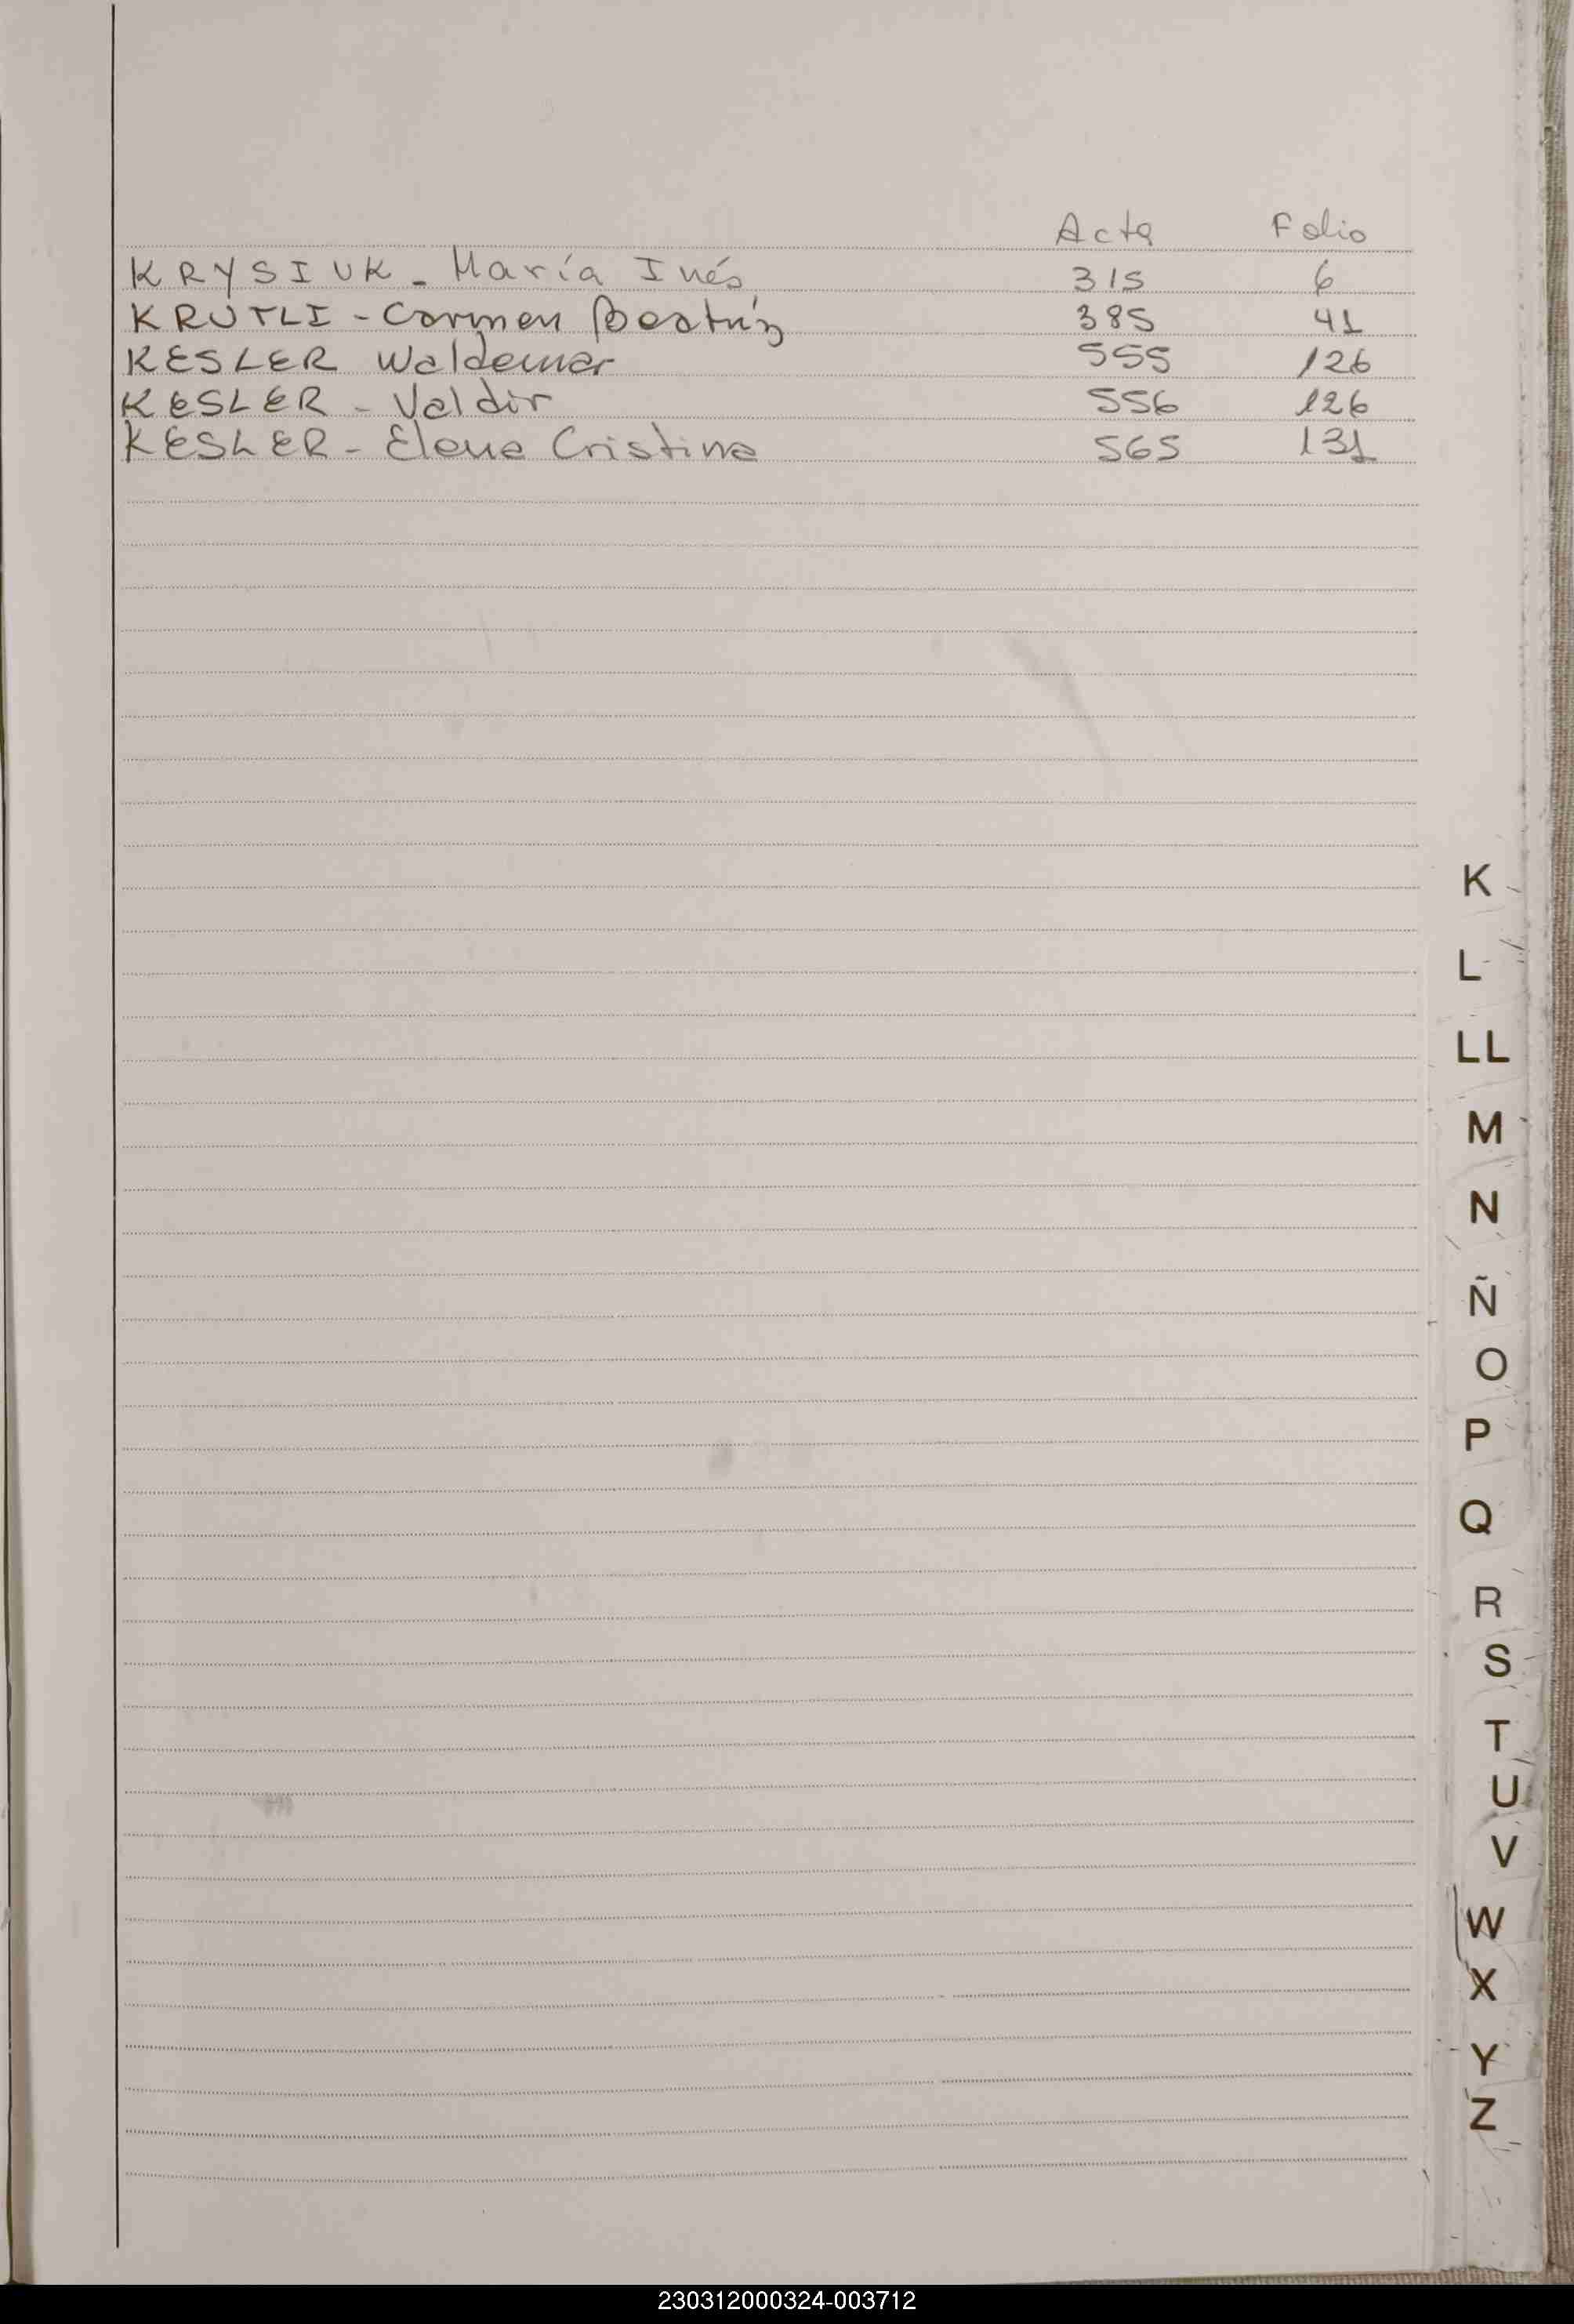 Acta Folio
KRYSIUK - María Inés 315 6
KRUTLI - Carmen Beatríz 385 41
KESLER Waldemar 555 126
KESLER - Valdir 556 126
KESLER - Elena Cristina 565 131
K
L
LL
M
N
Ñ
O
P
Q
R
S
T
U
V
W
X
Y
Z
230312000324-003712